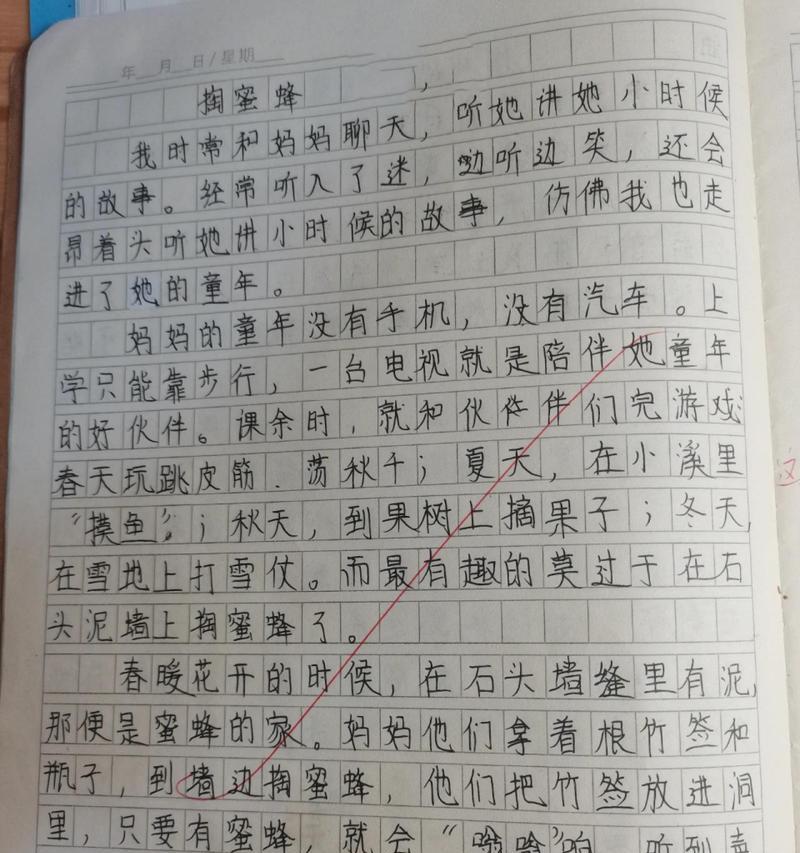 年 月 日/星期
掏蜜蜂
我时常和妈妈聊天，听她讲她小时候
的故事。经常听入了迷，边听边笑，还会
昂着头听她讲小时候的故事，仿佛我也走
进了她的童年。
妈妈的童年没有手机，没有汽车。上
学只能靠步行，一台电视就是陪伴她童年
的好伙伴。课余时，就和伙伴们完游戏：
春天玩跳皮筋、荡秋千；夏天，在小溪里
“摸鱼”；秋天，到果树上摘果子；冬天，
在雪地上打雪仗。而最有趣的莫过于在石
头泥墙上掏蜜蜂了。
春暖花开的时候，在石头墙缝里有泥，
那便是蜜蜂的家。妈妈他们拿着根竹签和
瓶子，到墙边掏蜜蜂，他们把竹签放进洞
里，只要有蜜蜂，就会“嗡嗡”响，听到声